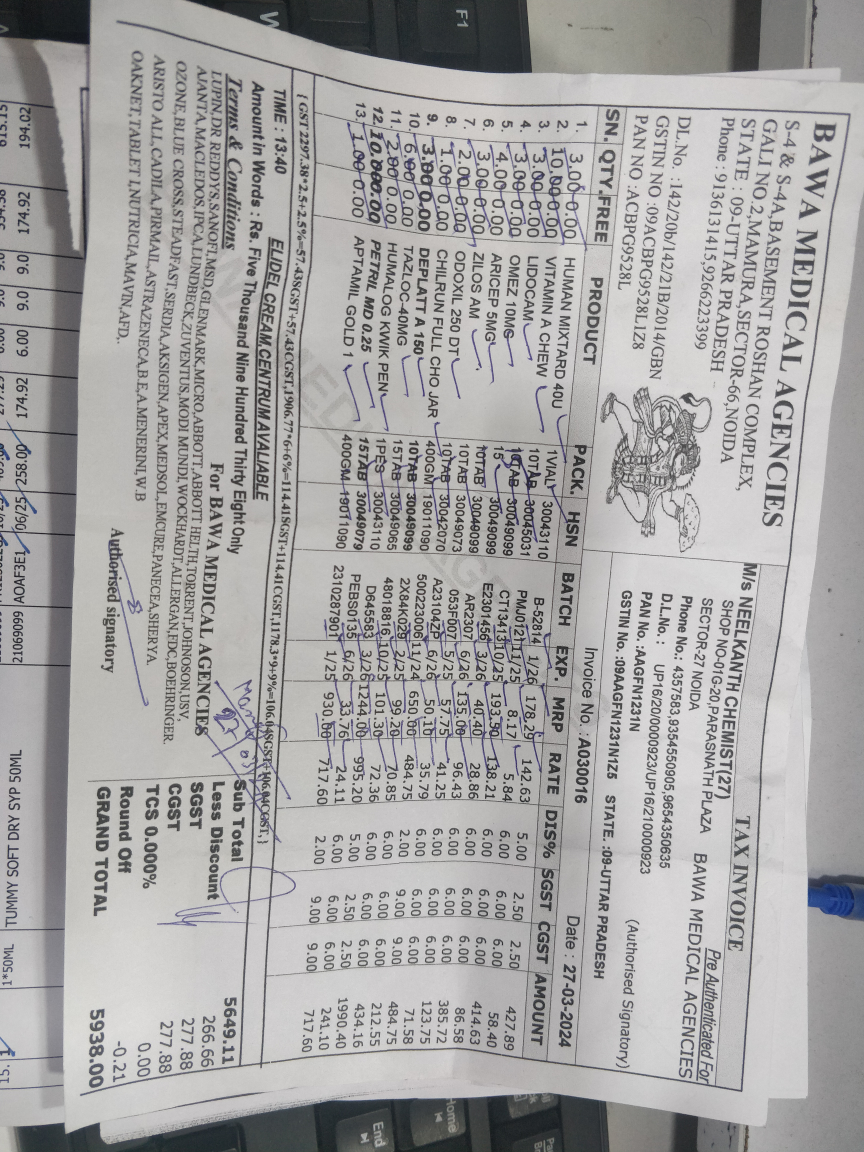 BAWA MEDICAL AGENCIES
S-4 & S-4A,BASEMENT ROSHAN COMPLEX,
GALI NO.2,MAMURA,SECTOR-66,NOIDA
STATE : 09-UTTAR PRADESH
Phone : 9136131415,9266223399
DL.No. :142/20b/142/21B/2014/GBN
GSTIN NO :09ACBPG9528L1Z8
PAN NO :ACBPG9528L
TAX INVOICE
Pre Authenticated For
M/s NEELKANTH CHEMIST(27)
BAWA MEDICAL AGENCIES
SHOP NO-01G-20,PARASNATH PLAZA
SECTOR-27 NOIDA
Phone No.: 4357583,9354550905,9654350635
D.L.No. : UP16/20/0000923/UP16/210000923
PAN No. :AAGFN1231N
(Authorised Signatory)
GSTIN No. :09AAGFN1231N1Z5 STATE. :09-UTTAR PRADESH
Invoice No. :A030016 Date : 27-03-2024
SN. QTY. FREE PRODUCT PACK. HSN BATCH EXP. MRP RATE DIS% SGST CGST AMOUNT
1. 3.00 0.00 HUMAN MIXTARD 40U 1VIAL 30043110 B-52814 1/26 178.29 142.63 5.00 2.50 2.50 427.89
2. 10.00 0.00 VITAMIN A CHEW 10TAB 30045031 PMJ0121 11/25 8.17 5.84 6.00 6.00 6.00 58.40
3. 3.00 0.00 LIDOCAM 10TAB 30049099 CT13413 10/25 193.90 138.21 6.00 6.00 6.00 414.63
4. 3.00 0.00 OMEZ 10MG 15 30049099 E2301456 3/26 40.40 28.86 6.00 6.00 6.00 86.58
5. 4.00 0.00 ARICEP 5MG 10TAB 30049099 AR2307 6/26 135.00 96.43 6.00 6.00 6.00 385.72
6. 3.00 0.00 ZILOS AM 10TAB 30049073 053F007 5/25 57.75 41.25 6.00 6.00 6.00 123.75
7. 2.00 0.00 ODOXIL 250 DT 10TAB 30042070 6/26 50.10 35.79 6.00 6.00 6.00 71.58
8. 1.00 0.00 CHILRUN FULL CHO JAR 400GM 19011090 500223006 11/24 650.00 484.75 2.00 9.00 9.00 484.75
9. 3.00 0.00 DEPLATT A 150 10TAB 30049099 2X84K029 2/25 99.20 70.85 6.00 6.00 6.00 212.55
10. 6.00 0.00 TAZLOC-40MG 15TAB 30049065 48018816 10/25 101.30 72.36 6.00 6.00 6.00 434.16
11. 2.00 0.00 HUMALOG KWIK PEN 1PES 30043110 D645583 3/26 1244.00 995.20 5.00 2.50 2.50 1990.40
12. 10.00 0.00 PETRIL MD 0.25 15TAB 30049079 PEBS0135 6/26 33.76 24.11 6.00 6.00 6.00 241.10
13. 1.00 0.00 APTAMIL GOLD 1 400GM 19011090 2310287901 1/25 930.00 717.60 2.00 9.00 9.00 717.60
{ GST 2297.38*2.5+2.5%=57.43SGST+57.43CGST,1906.77*6+6%=114.41SGST+114.41CGST,1178.3*9+9%=106.04SGST+106.04CGST, }
ELIDEL CREAM,CENTRUM AVALIABLE
TIME : 13:40
Amount in Words : Rs. Five Thousand Nine Hundred Thirty Eight Only
Terms & Conditions
For BAWA MEDICAL AGENCIES
LUPIN,DR REDDYS,SANOFI,MSD,GLENMARK,MICRO,ABBOTT,ABBOTT HELTH,TORRENT,JOHNOSON,USV,
AJANTA,MACLEDOS,IPCA,LUNDBECK,ZUVENTUS,MODI MUNDI,WOCKHARDT,ALLERGAN,FDC,BOEHRINGER
OZONE,BLUE CROSS,STEADFAST,SERDIA,AKSIGEN,APEX,MEDSOL,EMCURE,PANECEA,SHERYA
ARISTO ALL,CADILA,PIRMAIL,ASTRAZENECA,B.E,A.MENERINI,W.B
OAKNET,TABLET I,NUTRICIA,MAVIN,AFD,.
Authorised signatory
Sub Total 5649.11
Less Discount 266.66
SGST 277.88
CGST 277.88
TCS 0.000% 0.00
Round Off -0.21
GRAND TOTAL 5938.00
TUMMY SOFT DRY SYP 50ML 1*50ML
194.02 174.92 9.0 9.0 6.00 174.92
F1
Home
End